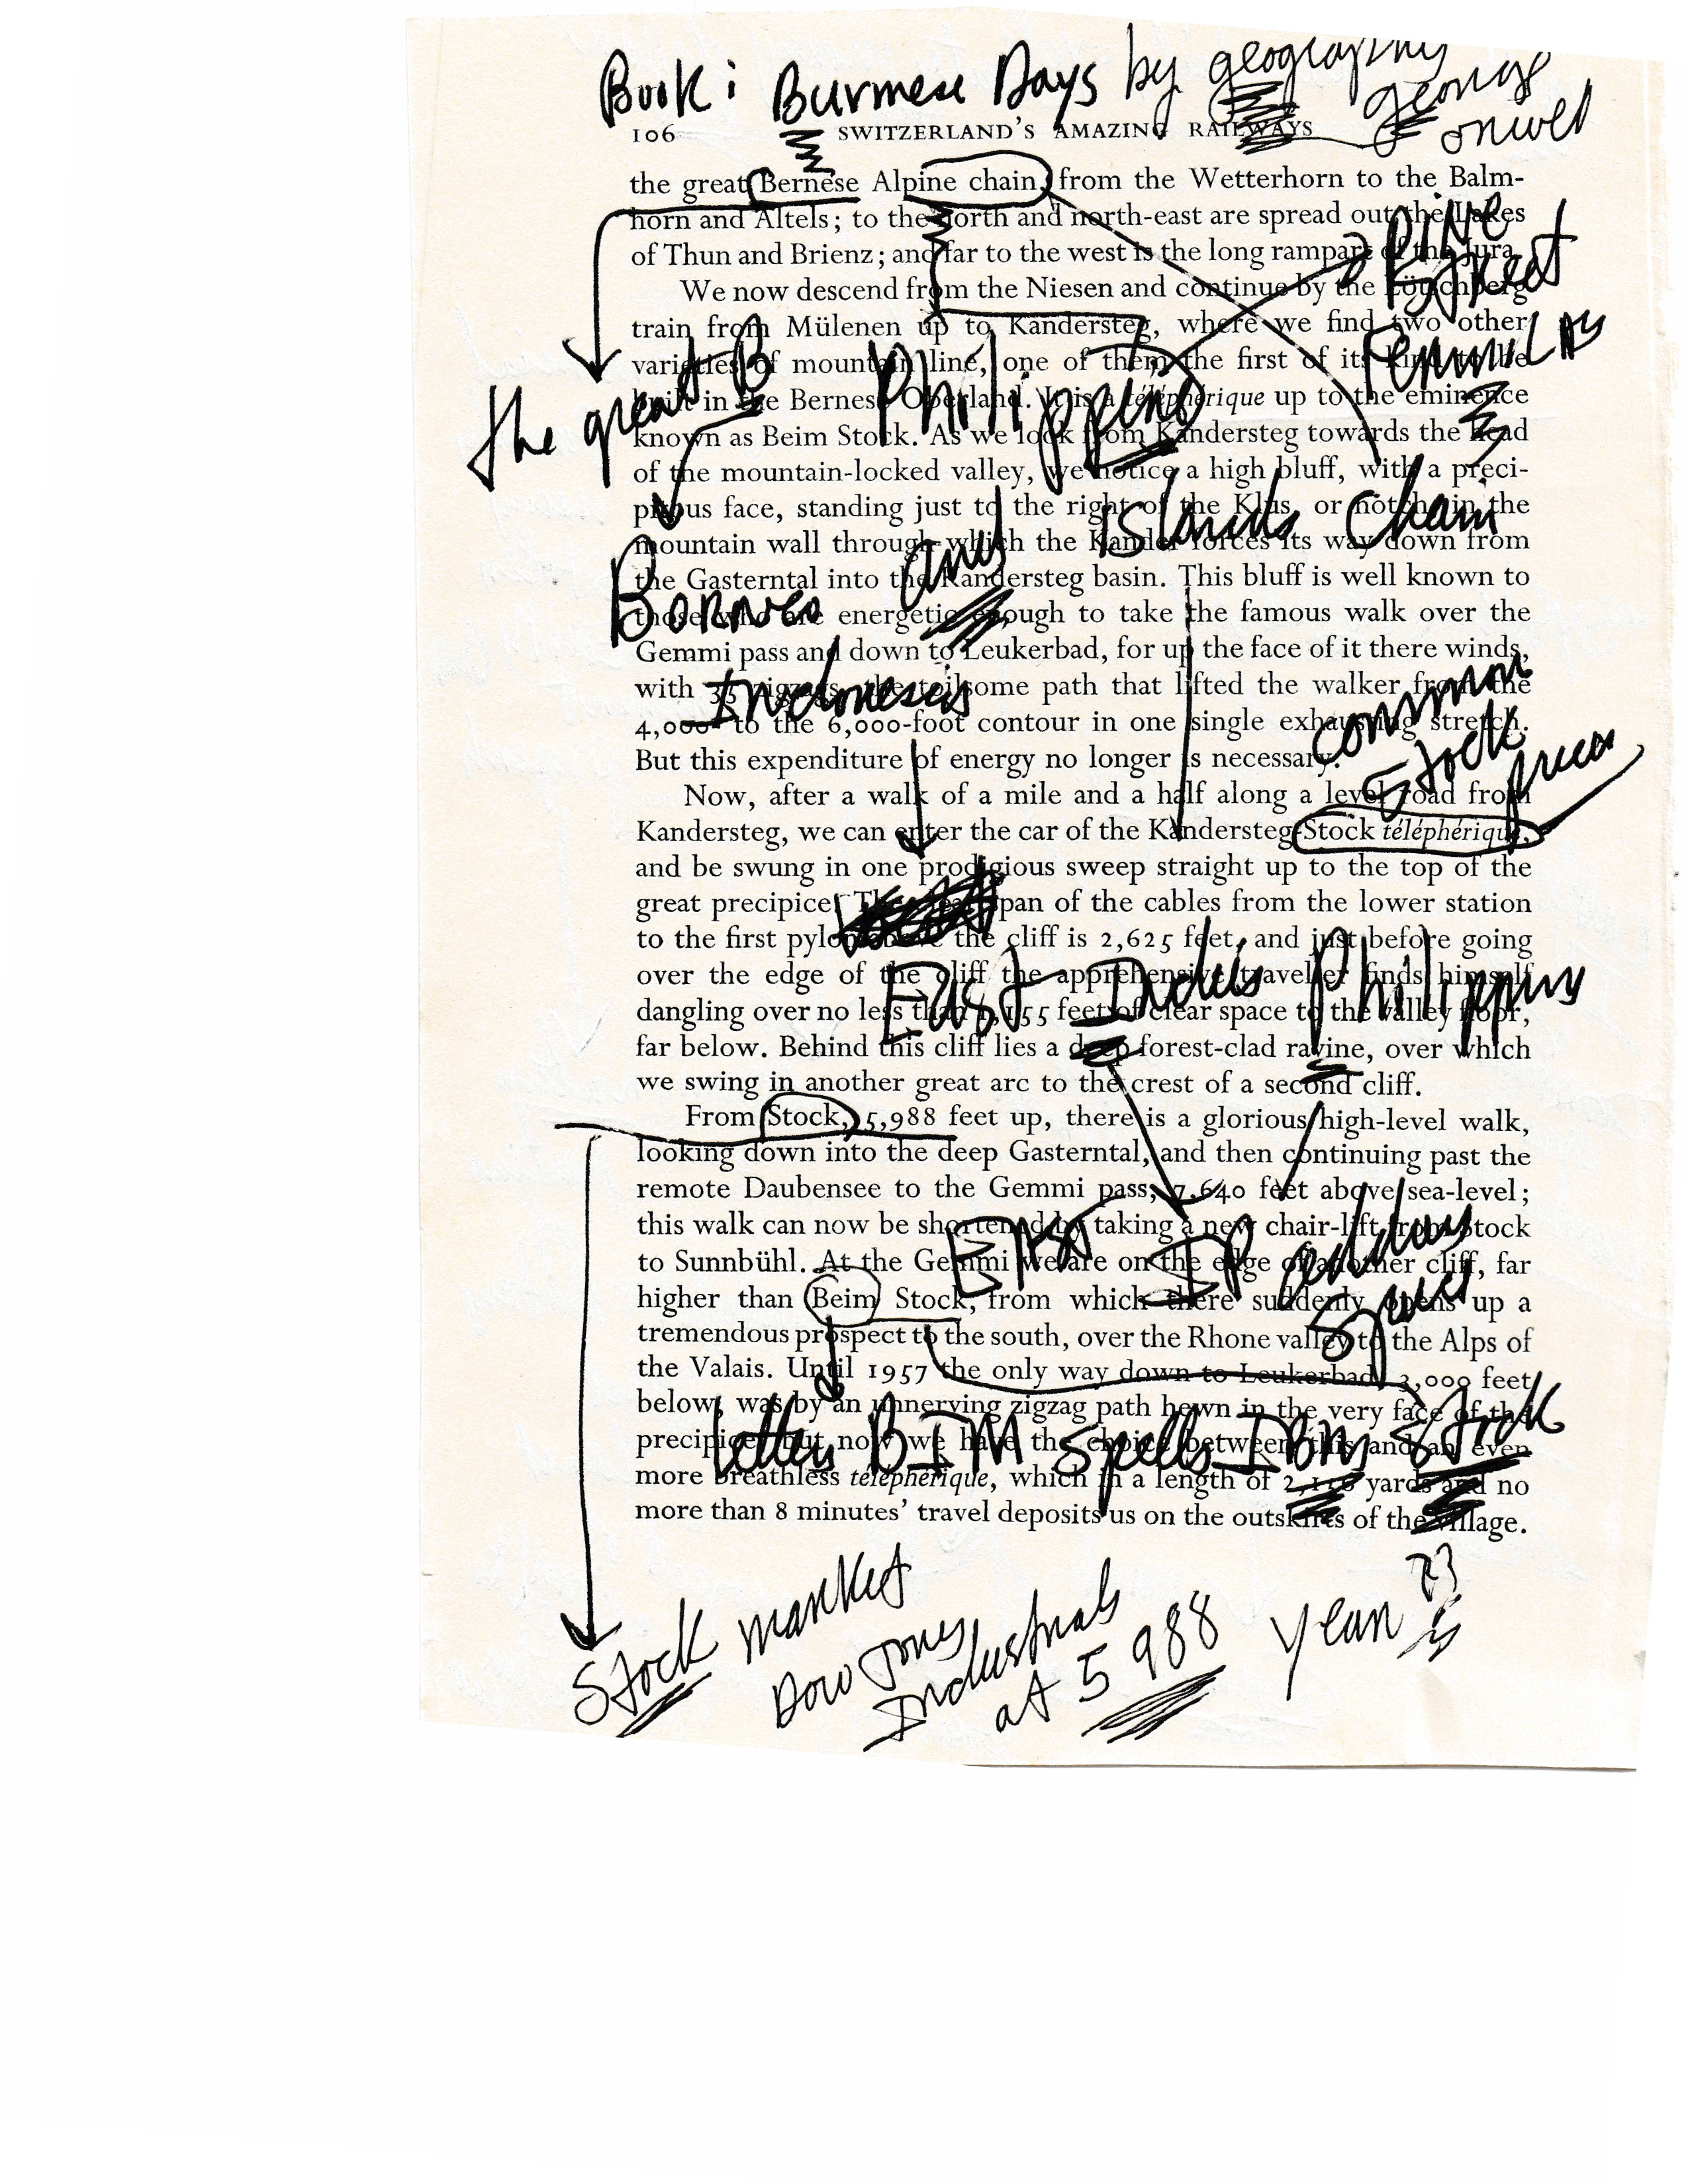 Book: Burmese Days by geography
george
orwel
106 SWITZERLAND'S AMAZING RAILWAYS
the great Bernese Alpine chain, from the Wetterhorn to the Balm-
horn and Altels; to the north and north-east are spread out the Lakes
of Thun and Brienz; and far to the west is the long rampart of the Jura.
Pine
Street
We now descend from the Niesen and continue by the Lötschberg
train from Mülenen up to Kandersteg, where we find two other
varieties of mountain line, one of them the first of its kind to be
built in the Bernese Oberland. It is a téléphérique up to the eminence
the great B
Philippine
known as Beim Stock. As we look from Kandersteg towards the head
of the mountain-locked valley, we notice a high bluff, with a preci-
pitous face, standing just to the right of the Klus, or notch in the
Islands Chain
mountain wall through which the Kander forces its way down from
the Gasterntal into the Kandersteg basin. This bluff is well known to
Borneo and
those who are energetic enough to take the famous walk over the
Gemmi pass and down to Leukerbad, for up the face of it there winds,
with 35 zigzags, the toilsome path that lifted the walker from the
Indonesia
4,000- to the 6,000-foot contour in one single exhausting stretch.
common
Stock
But this expenditure of energy no longer is necessary.
Now, after a walk of a mile and a half along a level road from
Kandersteg, we can enter the car of the Kandersteg-Stock téléphérique,
and be swung in one prodigious sweep straight up to the top of the
great precipice. The span of the cables from the lower station
to the first pylon above the cliff is 2,625 feet, and just before going
over the edge of the cliff the apprehensive traveller finds himself
East Indies Philippines
dangling over no less than 1,155 feet of clear space to the valley floor,
far below. Behind this cliff lies a deep forest-clad ravine, over which
we swing in another great arc to the crest of a second cliff.
From Stock, 5,988 feet up, there is a glorious high-level walk,
looking down into the deep Gasterntal, and then continuing past the
remote Daubensee to the Gemmi pass, 7,640 feet above sea-level;
this walk can now be shortened by taking a new chair-lift from Stock
to Sunnbühl. At the Gemmi we are on the edge of another cliff, far
EAST IP address
space
higher than Beim Stock, from which there suddenly opens up a
tremendous prospect to the south, over the Rhone valley to the Alps of
the Valais. Until 1957 the only way down to Leukerbad, 3,000 feet
below, was by an unnerving zigzag path hewn in the very face of the
precipice, but now we have the choice between this and an even
letters BIM spells IBM Stock
more breathless téléphérique, which in a length of 2,150 yards and no
more than 8 minutes' travel deposits us on the outskirts of the village.
Stock market
Dow Jones
Industrials
at 5 988 year